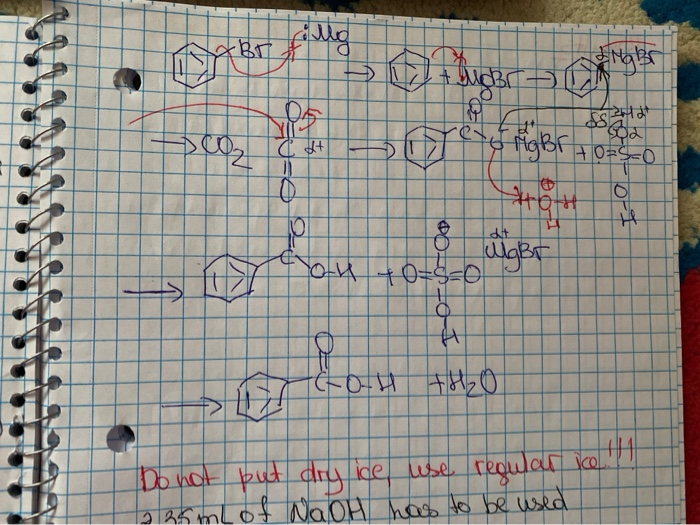 Br Mg
→ + MgBr → MgBr
→ CO2 O C O → C O MgBr + O=S=O
H-O-H
H
O
H
→ C O O-H + O=S=O MgBr
O
H
→ C O -O-H +H2O
Do not put dry ice, use regular ice!!!
235mL of NaOH has to be used